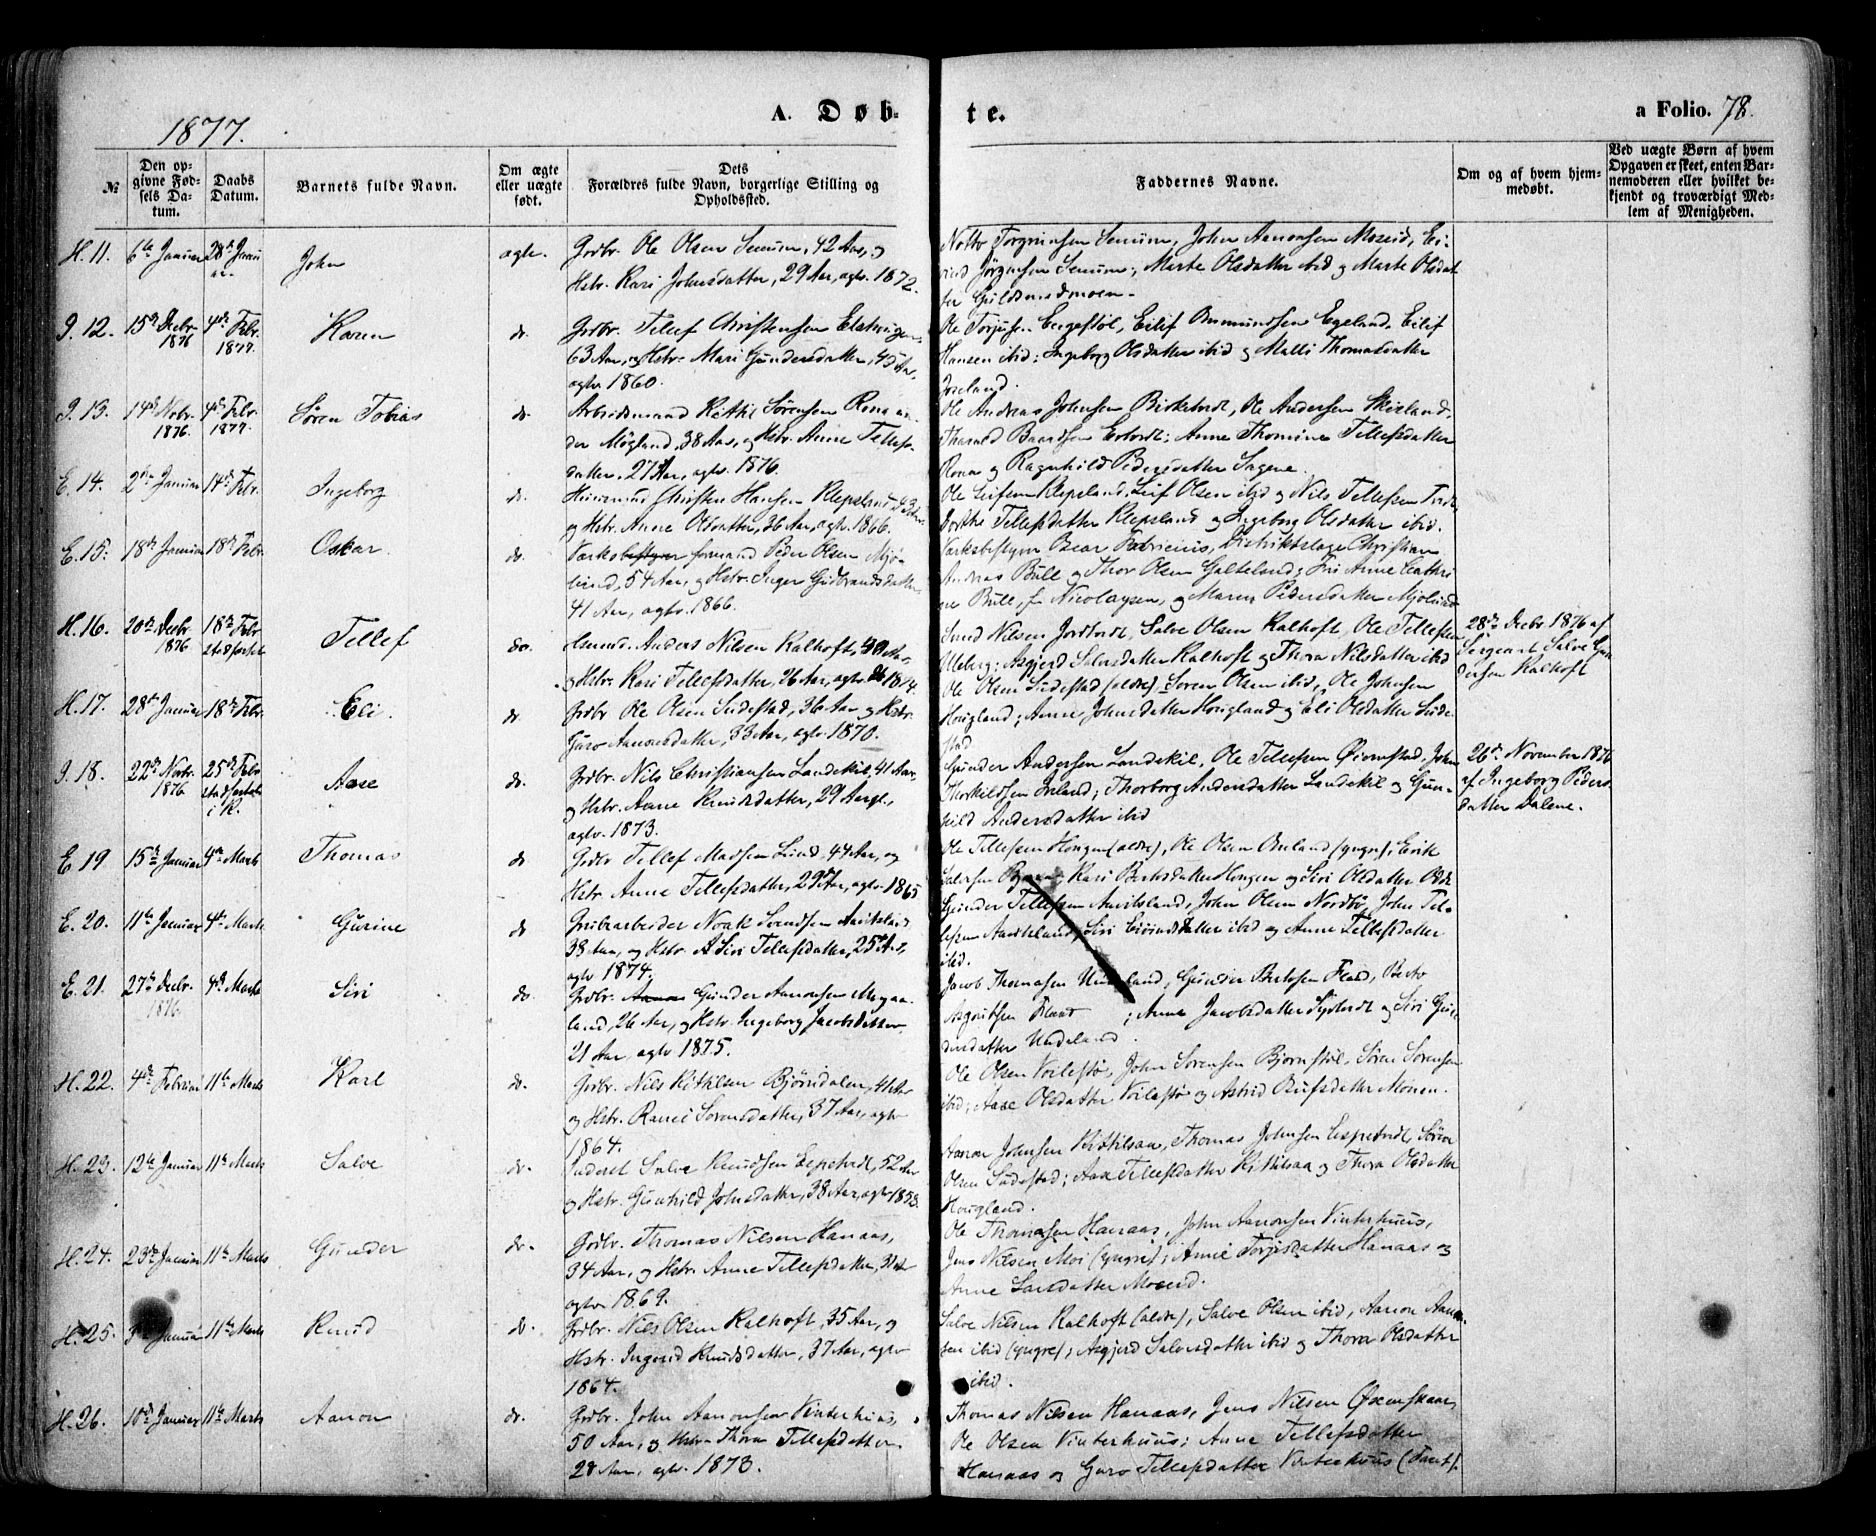 1877.
A. Døb-
te.
a Folio. 78.
№
Den op-
givne Fød-
sels Da-
tum.
Daabs
Datum.
Barnets fulde Navn.
Om ægte
eller uægte
født.
Dets
Forældres fulde Navn, borgerlige Stilling og
Opholdssted.
Faddernes Navne.
Om og af hvem hjem-
medøbt.
Ved uægte Børn af hvem
Opgaven er skeet, enten Bar-
nemoderen eller hvilket be-
kjendt og troværdigt Med-
lem af Menigheden.
H. 11. 6te Januar 28de Janu
ar
John
ægte.
Grdbr. Ole Olsen Senum, 42 Aar, og
Hstr. Kari Johnsdatter, 29 Aar, agtv. 1872.
Torgrimsen Senum, John Aanonsen Moseid, Ei-
vind Jörgensen Senum; Marte Olsdatter ibid og Marte Olsdat
ter Guldsmedmoen.
9. 12. 15de Decbr 4de Febr.
1876 1877.
Karen
do.
Grdbr. Tellef Christensen
63 Aar, og Hstr. Mari Gundersdatter, 45 Aar,
agtv 1860.
Ole Torjusen Engestöl, Eilif Omundsen Egeland, Eilif
Hansen ibid; Ingeborg Olsdatter ibid og Malli Thomasdatter
Joreland.
9. 13. 14de Nobr. 4de Febr.
1876. 1877.
Søren Tobias
do.
Arbeidsmand Kittil Sörensen Rona un-
der Mögland, 38 Aar, og Hstr. Anne Tellefs-
datter, 27 Aar, agtv. 1876.
Ole Andreas Johnsen Birketvedt, Ole Andersen Skisland,
Tharald Baardsen; Anne Thomine Tellefsdatter
Rona og Ragnhild Pedersdatter Sagene.
E. 14. 2den Januar 14de Febr.
Ingeborg
do.
Christen Hansen Klepsland, 43 Aar
og Hstr. Anne Olsdatter, 36 Aar, agtv. 1866.
Ole Leifsen Klepsland, Leif Olsen ibid og Nils Tellefsen
Dorthe Tellefsdatter Klepsland og Ingeborg Olsdatter ibid.
E. 15. 18de Januar 18de Febr.
Oskar
do
Værksbestyrer formand Peder Olsen Mjö-
lund, 54 Aar, og Hstr. Inger Gudbrandsdatter
41 Aar, agtv. 1866.
Værksbestyrer Oscar Fabricius, Distriktslæge Christian
Andreas Bull og Thor Olsen Galteland; Fru Anne Cathri
ne Bull, f. Nicolaysen, og Maren Pedersdatter Mjölund
H. 16. 20de Decbr. 18de Febr
1876 stadfæstet
Tellef
do.
Anders Nilsen Kalhoft, 40 Aar,
og Hstr. Kari Tellefsdatter, 26 Aar, agtv. 1874.
Nilsen, Salve Olsen Kalhoft, Ole Tellefsen
Uleberg; Asgjerd Salvesdatter Kalhoft og Thora Nilsdatter ibid
28de Decbr 1876 af
Sergeant Salve Gun
dersen Kalhoft
H. 17. 28de Januar 18de Febr.
Eli.
do.
Grdbr Ole Olsen Sudestad, 36 Aar og Hstr.
Guro Aanonsdatter, 33 Aar, agtv. 1870.
Ole Olsen Sudestad (ældre), Sören Olsen ibid, Ole Johnsen
Hougland; Anne Johnsdatter Hougland og Eli Olsdatter Sude-
stad
9. 18. 22de Novbr. 25de Febr
1876 stadfæstet
i K.
Aase
do.
Grdbr. Nils Christiansen Landeskil, 41 Aar,
og Hstr. Anne Knudsdatter, 29 Aar,
agtv. 1873.
Gunder Andersen Landeskil, Ole Tellefsen Öiernstad, John
Thorkildsen Iveland; Thorborg Andersdatter Landeskil og Gun-
hild Andersdatter ibid
26de November 1876
af Ingeborg Peders
datter Dalene.
E. 19 15de Januar 4de Marts
Thomas
do
Grdbr Tellef Madsen Lund, 44 Aar, og
Hstr. Anne Tellefsdatter, 29 Aar, agtv. 1865
Ole Tellefsen Hougen (ældre), Ole Olsen Omland (yngre), Eerik
Salvesen; Kari Bertsdatter Hougen og Siri Olsdatter
E. 20. 11te Januar 4de Marts
Gurine
do
Grubearbeider Noak Svendsen Aavitsland
38 Aar, og Hstr. Siri Tellefsdatter, 25 Aar,
agtv 1874.
Gunder Tellefsen Aavitsland, John Olsen Nordbö, John Tel-
lefsen Aavitsland; Siri Eivindsdatter ibid og Anne Tellefsdatter
ibid.
E. 21. 27de Decbr. 4de Marts
1876.
Siri
do
Grdbr. Gunder Aanonsen
land, 26 Aar, og Hstr. Ingeborg Jacobsdatter
21 Aar, agtv 1875.
Jacob Thomasen Uudeland, Gunder Bertosen Flaad, Berto
Asgrimsen Flaat; Anne Jacobsdatter og Siri Gun
dersdatter Uudeland.
H. 22. 4de Februar 11te Marts
Karl
do.
Grdbr. Nils Kittilsen Björndalen, 41 Aar
og Hstr. Sorensdatter, 37 Aar, agtv
1864.
Ole Olsen Voilestö, John Sorensen Bjornstöl, Sören Sorensen
ibid; Aase Olsdatter Voilestö og Astrid Monen.
H. 23. 12te Januar 11te Marts
Salve
do.
Inderst Salve Knudsen Espetvedt, 52 Aar
og Hstr. Gunhild Johnsdatter, 38 Aar, agtv 1858.
Aanon Johnsen Kittilsaa, Thomas Johnsen Espetvedt, Sören
Olsen Sudestad; Aase Tellefsdatter Kittilsaa og Thora Olsdatter
Hougland.
H. 24. 23de Januar 11te Marts
Gunder
do.
Grdbr. Thomas Nilsen Hanaas,
34 Aar, og Hstr. Anne Tellefsdatter, 31 Aar
agtv. 1869.
Ole Thomasen Hanaas, John Aanonsen Vinterhuus,
Jens Nilsen Moi (yngre); Anne Torjisdatter Hanaas og
Anne Larsdatter Moseid.
H. 25. Januar 11te Marts
Knud
do.
Grdbr. Nils Olsen Kalhoft, 35 Aar, og
Hstr. Ingerid Knudsdatter, 37 Aar, agtv
1864.
Salve Nilsen Kalhoft (ældre), Salve Olsen ibid, Aanon Aanon-
sen ibid (yngre); Asgjerd Salvesdatter ibid og Thora Olsdatter
ibid.
H. 26. 10de Januar 11te Marts
Aanon
do.
Grdbr. John Aanonsen Vinterhuus,
50 Aar, og Hstr. Thora Tellefsdatter
28 Aar, agtv. 1873.
Thomas Nilsen Hanaas, Jens Nilsen Öxenskaar,
Ole Olsen Vinterhuus; Anne Tellefsdatter
Hanaas og Guro Tellefsdatter Vinterhuus